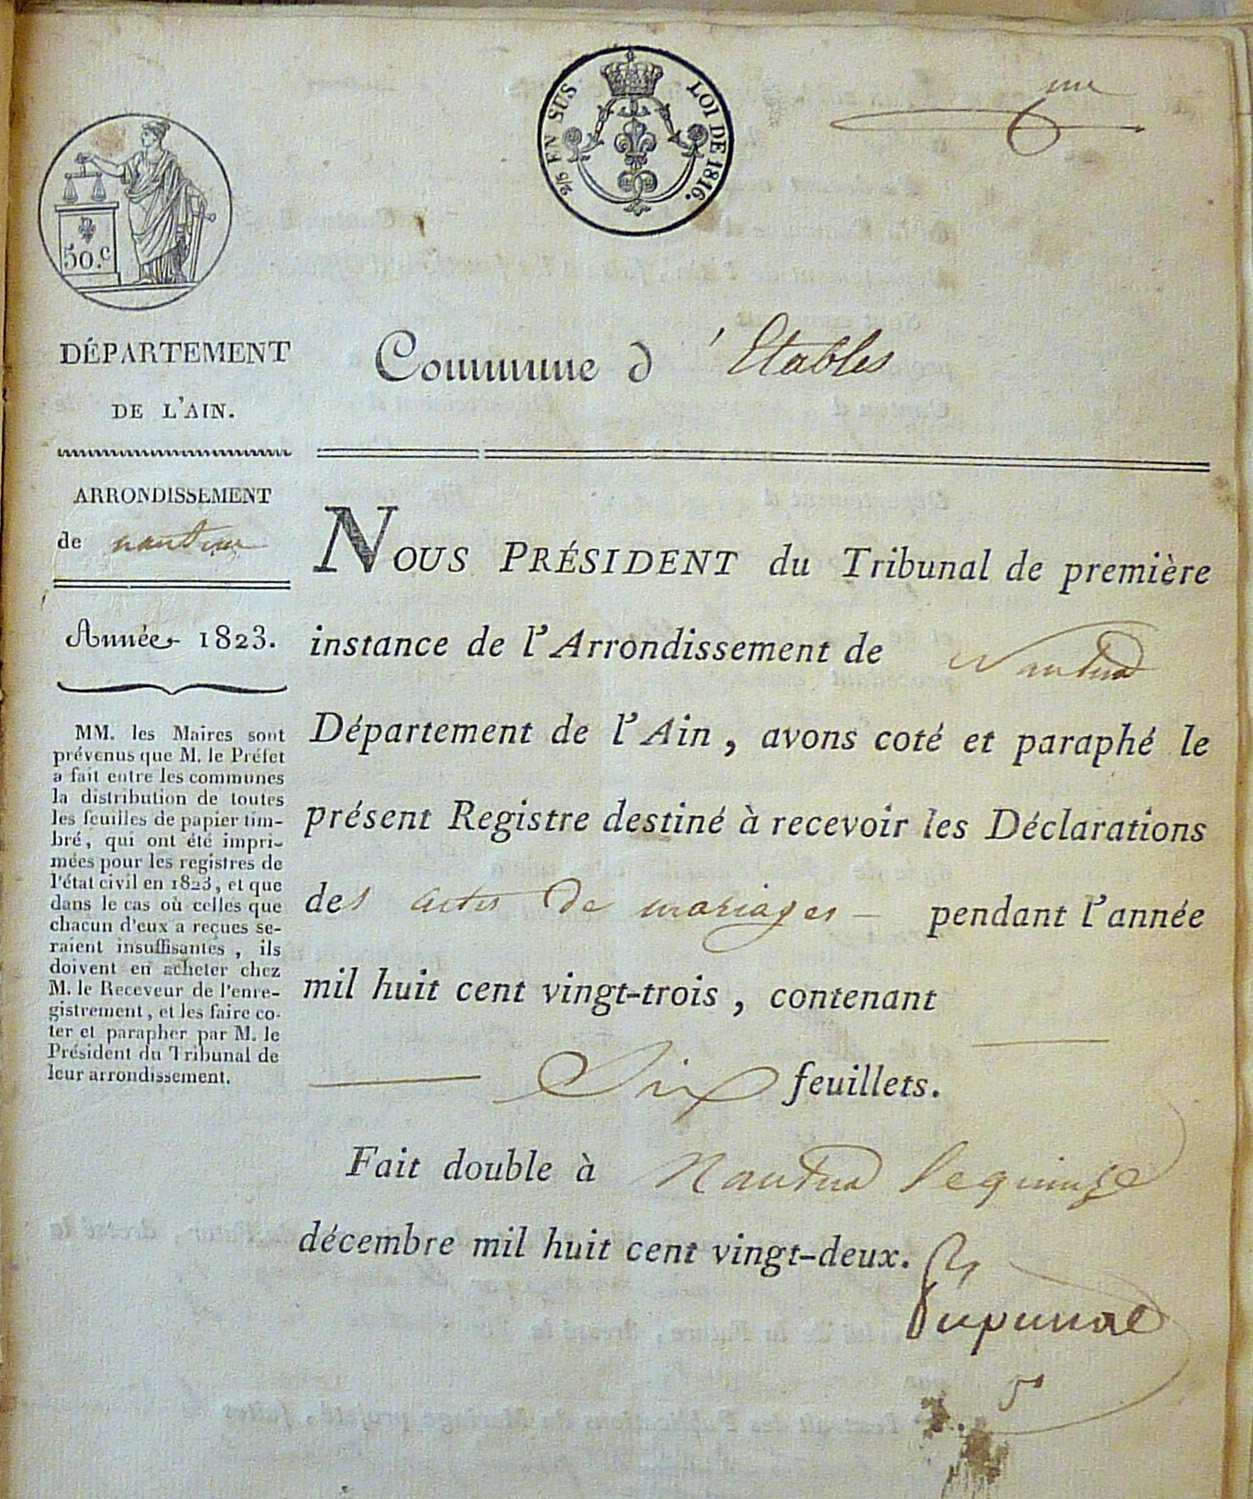 6me
2/5 EN SUS LOI DE 1816.
50.c
DÉPARTEMENT
DE L'AIN.
Commune d'Etables
ARRONDISSEMENT
de nantua
Année 1823.
MM. les Maires sont
prévenus que M. le Préfet
a fait entre les communes
la distribution de toutes
les feuilles de papier tim-
bré, qui ont été impri-
mées pour les registres de
l'état civil en 1823, et que
dans le cas où celles que
chacun d'eux a reçues se-
raient insuffisantes, ils
doivent en acheter chez
M. le Receveur de l'enre-
gistrement, et les faire co-
ter et parapher par M. le
Président du Tribunal de
leur arrondissement.
NOUS PRÉSIDENT du Tribunal de première
instance de l'Arrondissement de Nantua
Département de l'Ain, avons coté et paraphé le
présent Registre destiné à recevoir les Déclarations
des actes de mariages pendant l'année
mil huit cent vingt-trois, contenant
Six feuillets.
Fait double à Nantua le quinze
décembre mil huit cent vingt-deux.